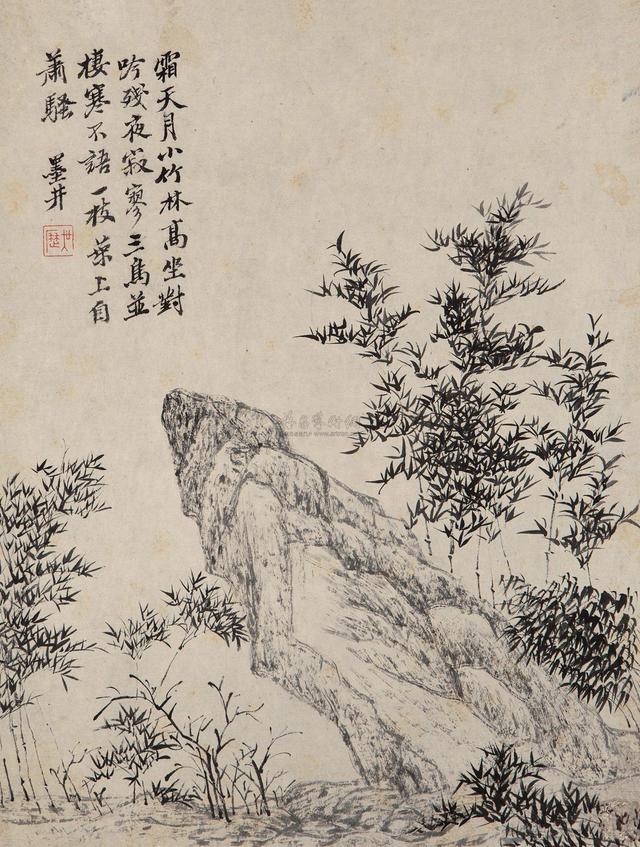 霜天月小竹林高坐對
吟殘夜寂寥三鳥並
棲寒不語一枝葉上自
蕭騷
墨井